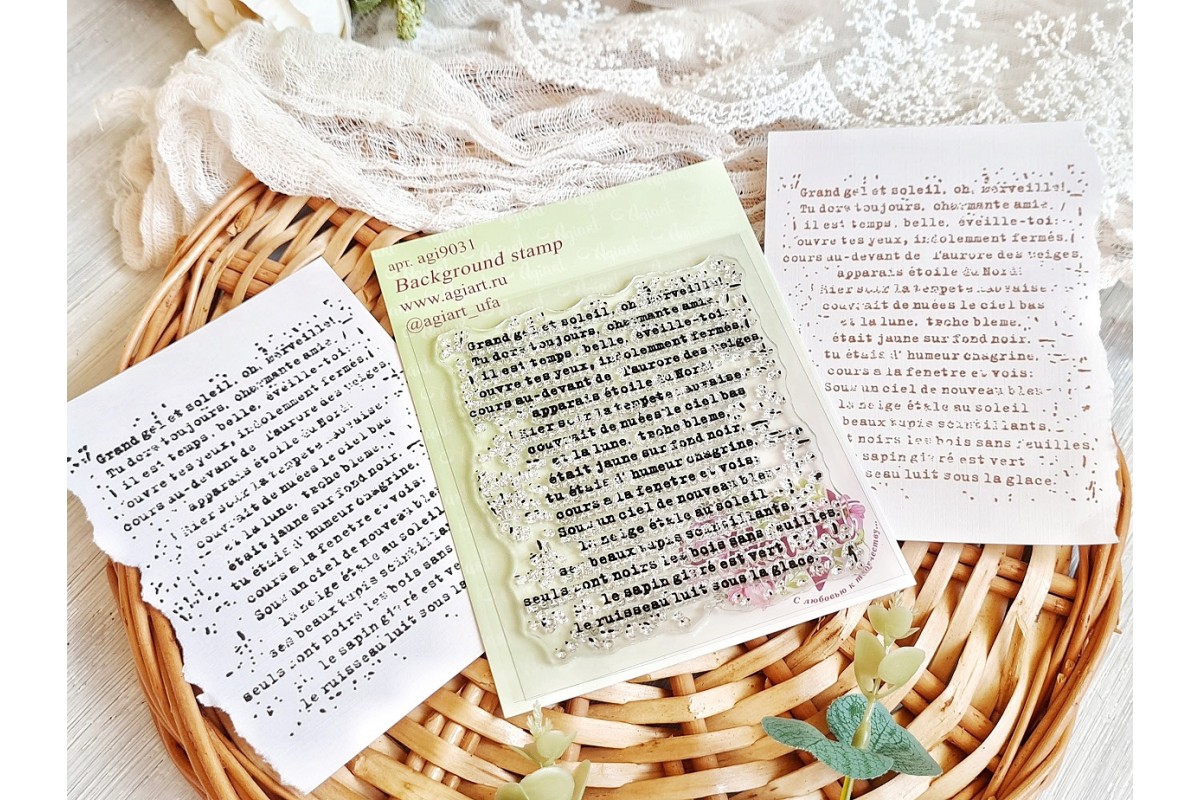 Grand gel et soleil, oh, merveille!
Tu dors toujours, charmante amie.
il est temps, belle, éveille-toi:
ouvre tes yeux, indolemment fermés,
cours au-devant de l'aurore des neiges,
apparais étoile du Nord!
Hier soir la tempete mauvaise
couvrait de nuées le ciel bas
et la lune, tache bleme,
était jaune sur fond noir,
tu étais d'humeur chagrine,
cours a la fenetre et vois:
Sous un ciel de nouveau bleu
la neige étale au soleil
ses beaux tapis scintillants,
seuls sont noirs les bois sans feuilles,
le sapin givré est vert
le ruisseau luit sous la glace.
арт. agi9031
Background stamp
www.agiart.ru
@agiart_ufa
Grand gel et soleil, oh, merveille!
Tu dors toujours, charmante amie.
il est temps, belle, éveille-toi:
ouvre tes yeux, indolemment fermés,
cours au-devant de l'aurore des neiges,
apparais étoile du Nord!
Hier soir la tempete mauvaise
couvrait de nuées le ciel bas
et la lune, tache bleme,
était jaune sur fond noir,
tu étais d'humeur chagrine,
cours a la fenetre et vois:
Sous un ciel de nouveau bleu
la neige étale au soleil
beaux tapis scintillants,
seuls sont noirs les bois sans feuilles,
le sapin givré est vert
le ruisseau luit sous la glace.
С любовью к творчеству...
Grand gel et soleil, oh, merveille!
Tu dors toujours, charmante amie.
il est temps, belle, éveille-toi:
ouvre tes yeux, indolemment fermés,
cours au-devant de l'aurore des neiges,
apparais étoile du Nord!
Hier soir la tempete mauvaise
couvrait de nuées le ciel bas
et la lune, tache bleme,
était jaune sur fond noir,
tu étais d'humeur chagrine,
cours a la fenetre et vois:
Sous un ciel de nouveau bleu
la neige étale au soleil
beaux tapis scintillants,
noirs les bois sans feuilles,
sapin givré est vert
seau luit sous la glace.